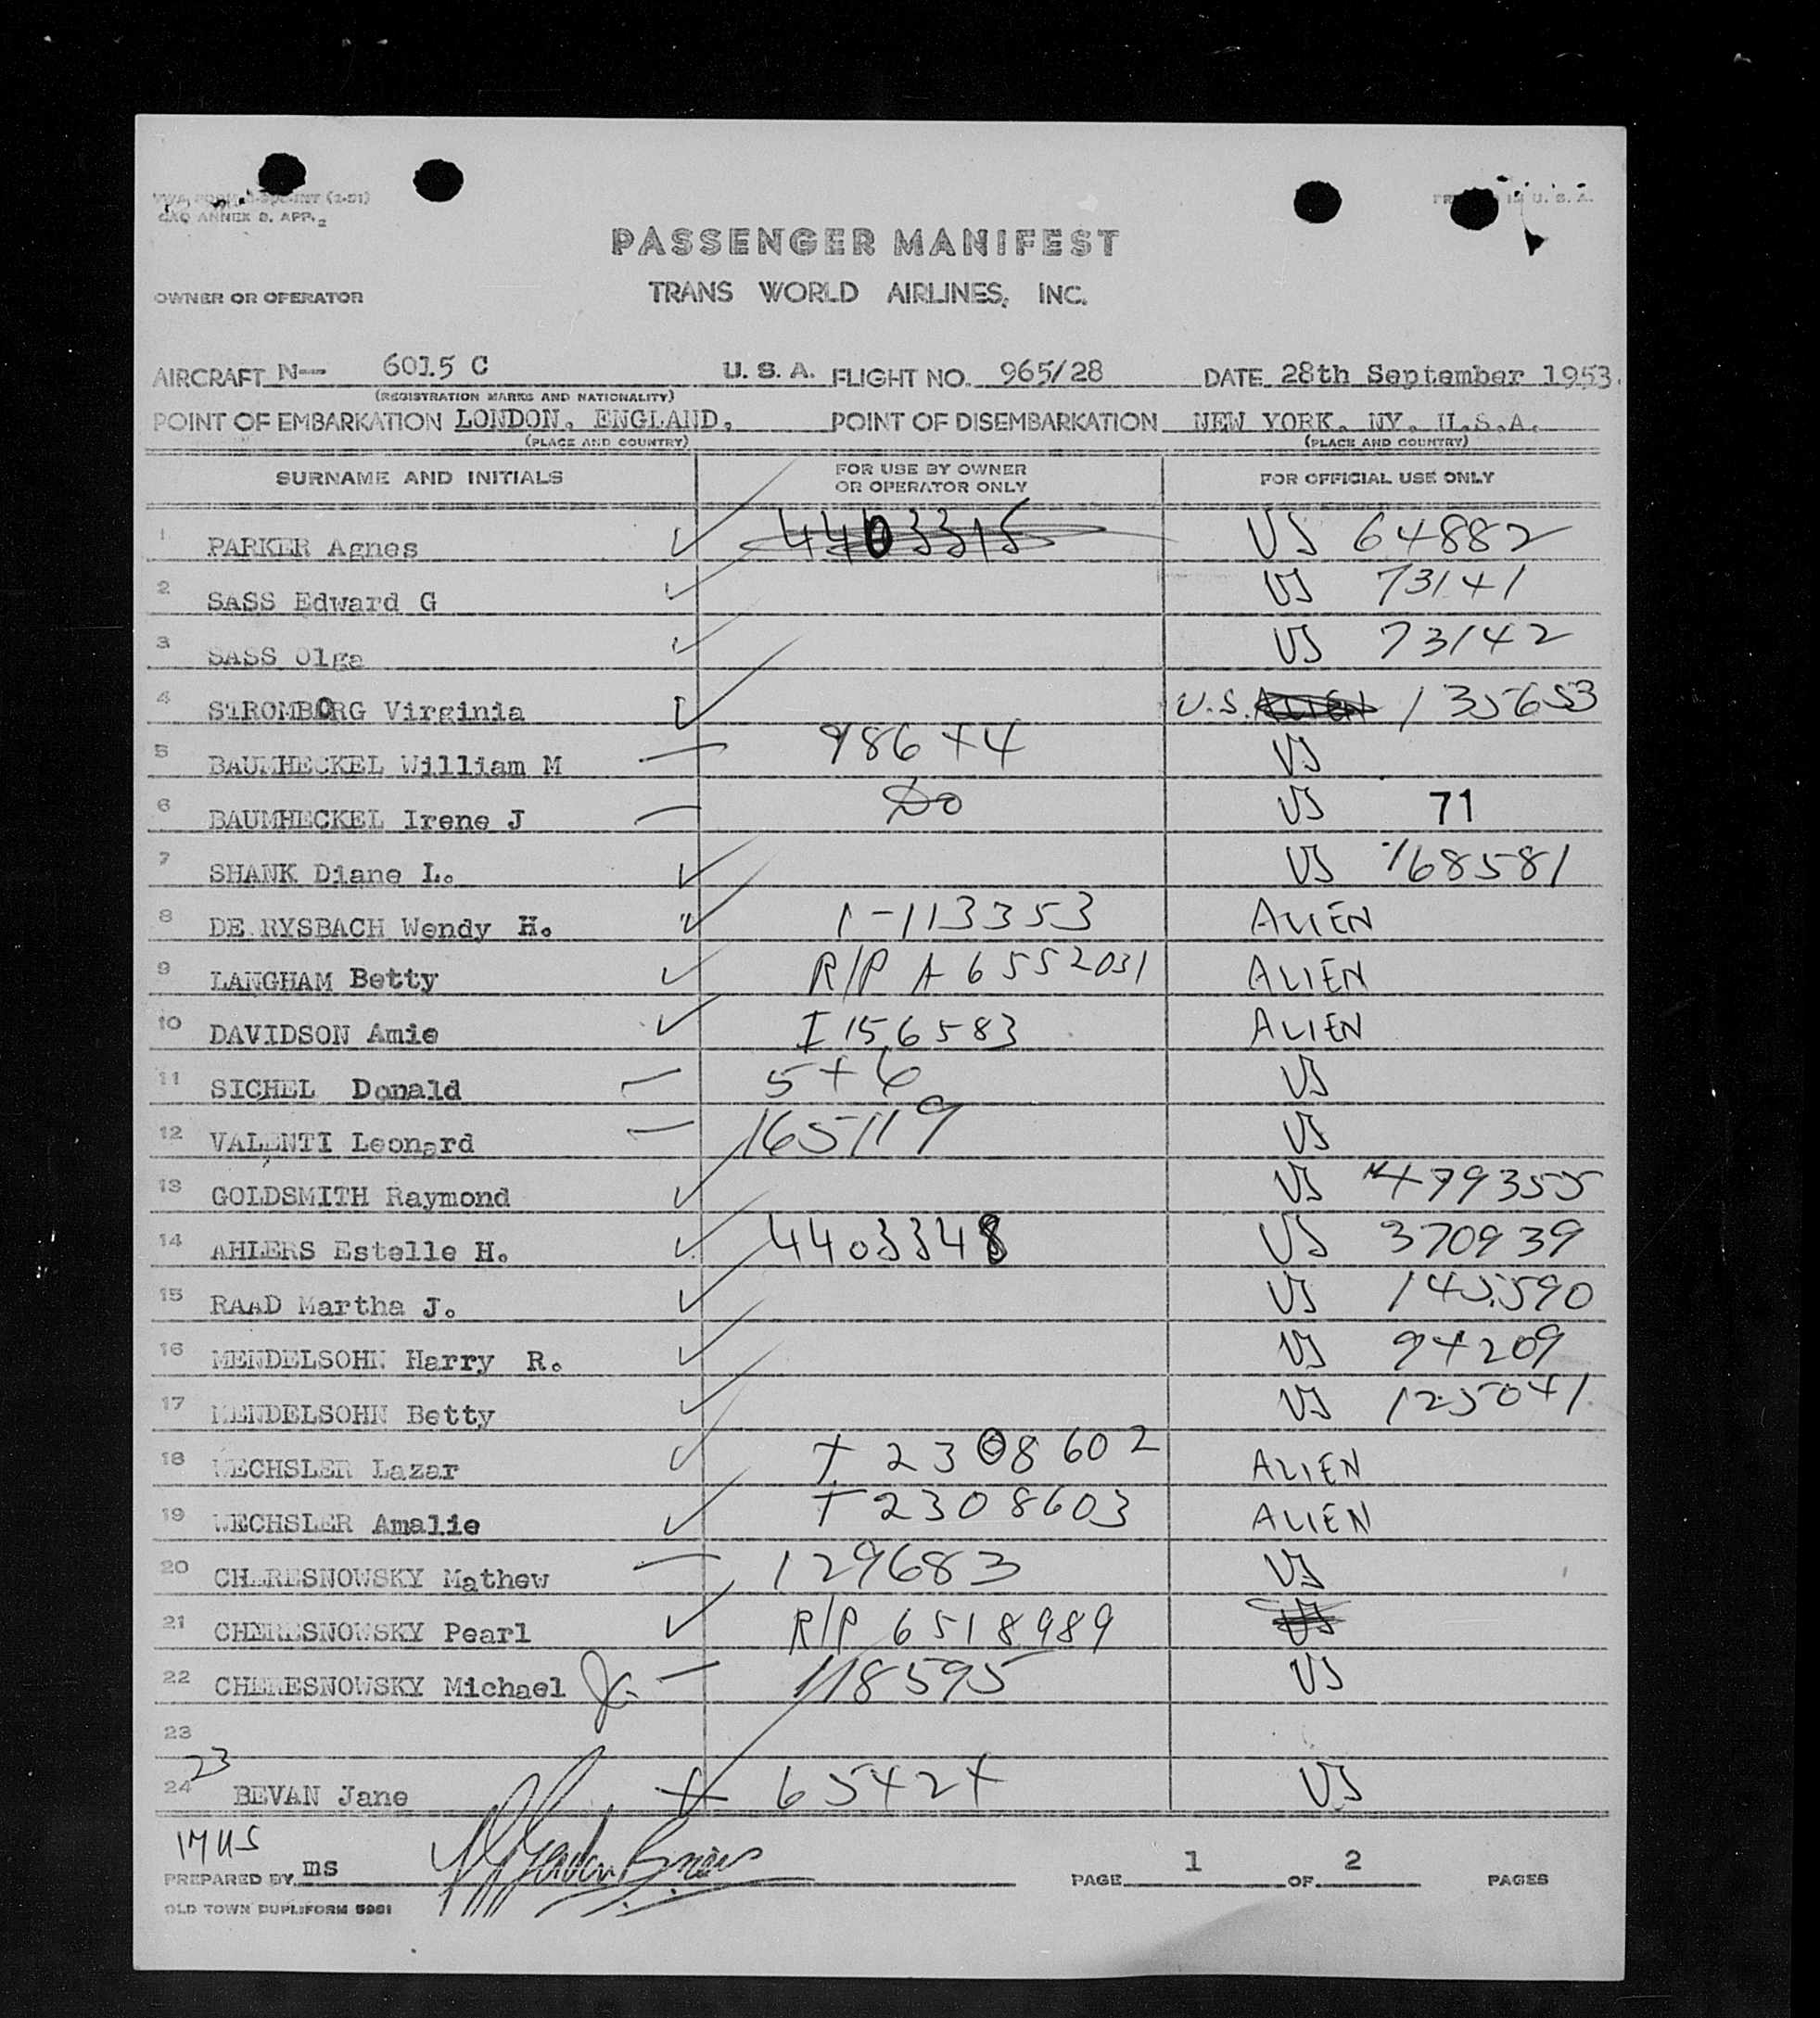 CAO ANNEX 9. APP. 2
U. S. A.
PASSENGER MANIFEST
OWNER OR OPERATOR TRANS WORLD AIRLINES, INC.
AIRCRAFT N-- 6015 C U. S. A. FLIGHT NO. 965/28 DATE 28th September 1953.
(REGISTRATION MARKS AND NATIONALITY)
POINT OF EMBARKATION LONDON, ENGLAND. POINT OF DISEMBARKATION NEW YORK. NY. U.S.A.
(PLACE AND COUNTRY) (PLACE AND COUNTRY)
SURNAME AND INITIALS FOR USE BY OWNER OR OPERATOR ONLY FOR OFFICIAL USE ONLY
1 PARKER Agnes 4403315 US 64882
2 SASS Edward G US 73141
3 SASS Olga US 73142
4 STROMBORG Virginia U.S. ALIEN 135653
5 BAUMHECKEL William M 986+4 US
6 BAUMHECKEL Irene J Do US 71
7 SHANK Diane L. US 168581
8 DE RYSBACH Wendy H. I-113353 ALIEN
9 LANGHAM Betty R/P A 6552031 ALIEN
10 DAVIDSON Amie I 156583 ALIEN
11 SICHEL Donald 5+6 US
12 VALENTI Leonard 165119 US
13 GOLDSMITH Raymond US 479355
14 AHLERS Estelle H. 4403348 US 370939
15 RAAD Martha J. US 145590
16 MENDELSOHN Harry R. US 94209
17 MENDELSOHN Betty US 125041
18 WECHSLER Lazar T 2308602 ALIEN
19 WECHSLER Amalie T 2308603 ALIEN
20 CHERESNOWSKY Mathew 129683 US
21 CHERESNOWSKY Pearl R/P 6518989 US
22 CHERESNOWSKY Michael Jr. 118595 US
23
23
24 BEVAN Jane 65424 US
17 US
PREPARED BY ms PAGE 1 OF 2 PAGES
OLD TOWN DUPLIFORM 5981